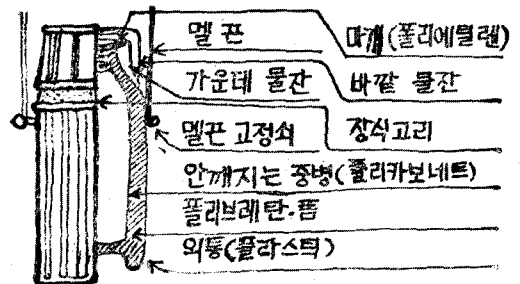 멜끈 마개(폴리에틸렌)
가운데 물잔 바깥 물잔
멜끈 고정쇠 장식고리
안깨지는 중병(폴리카보네트)
폴리브레탄·폼
외통(플라스틱)